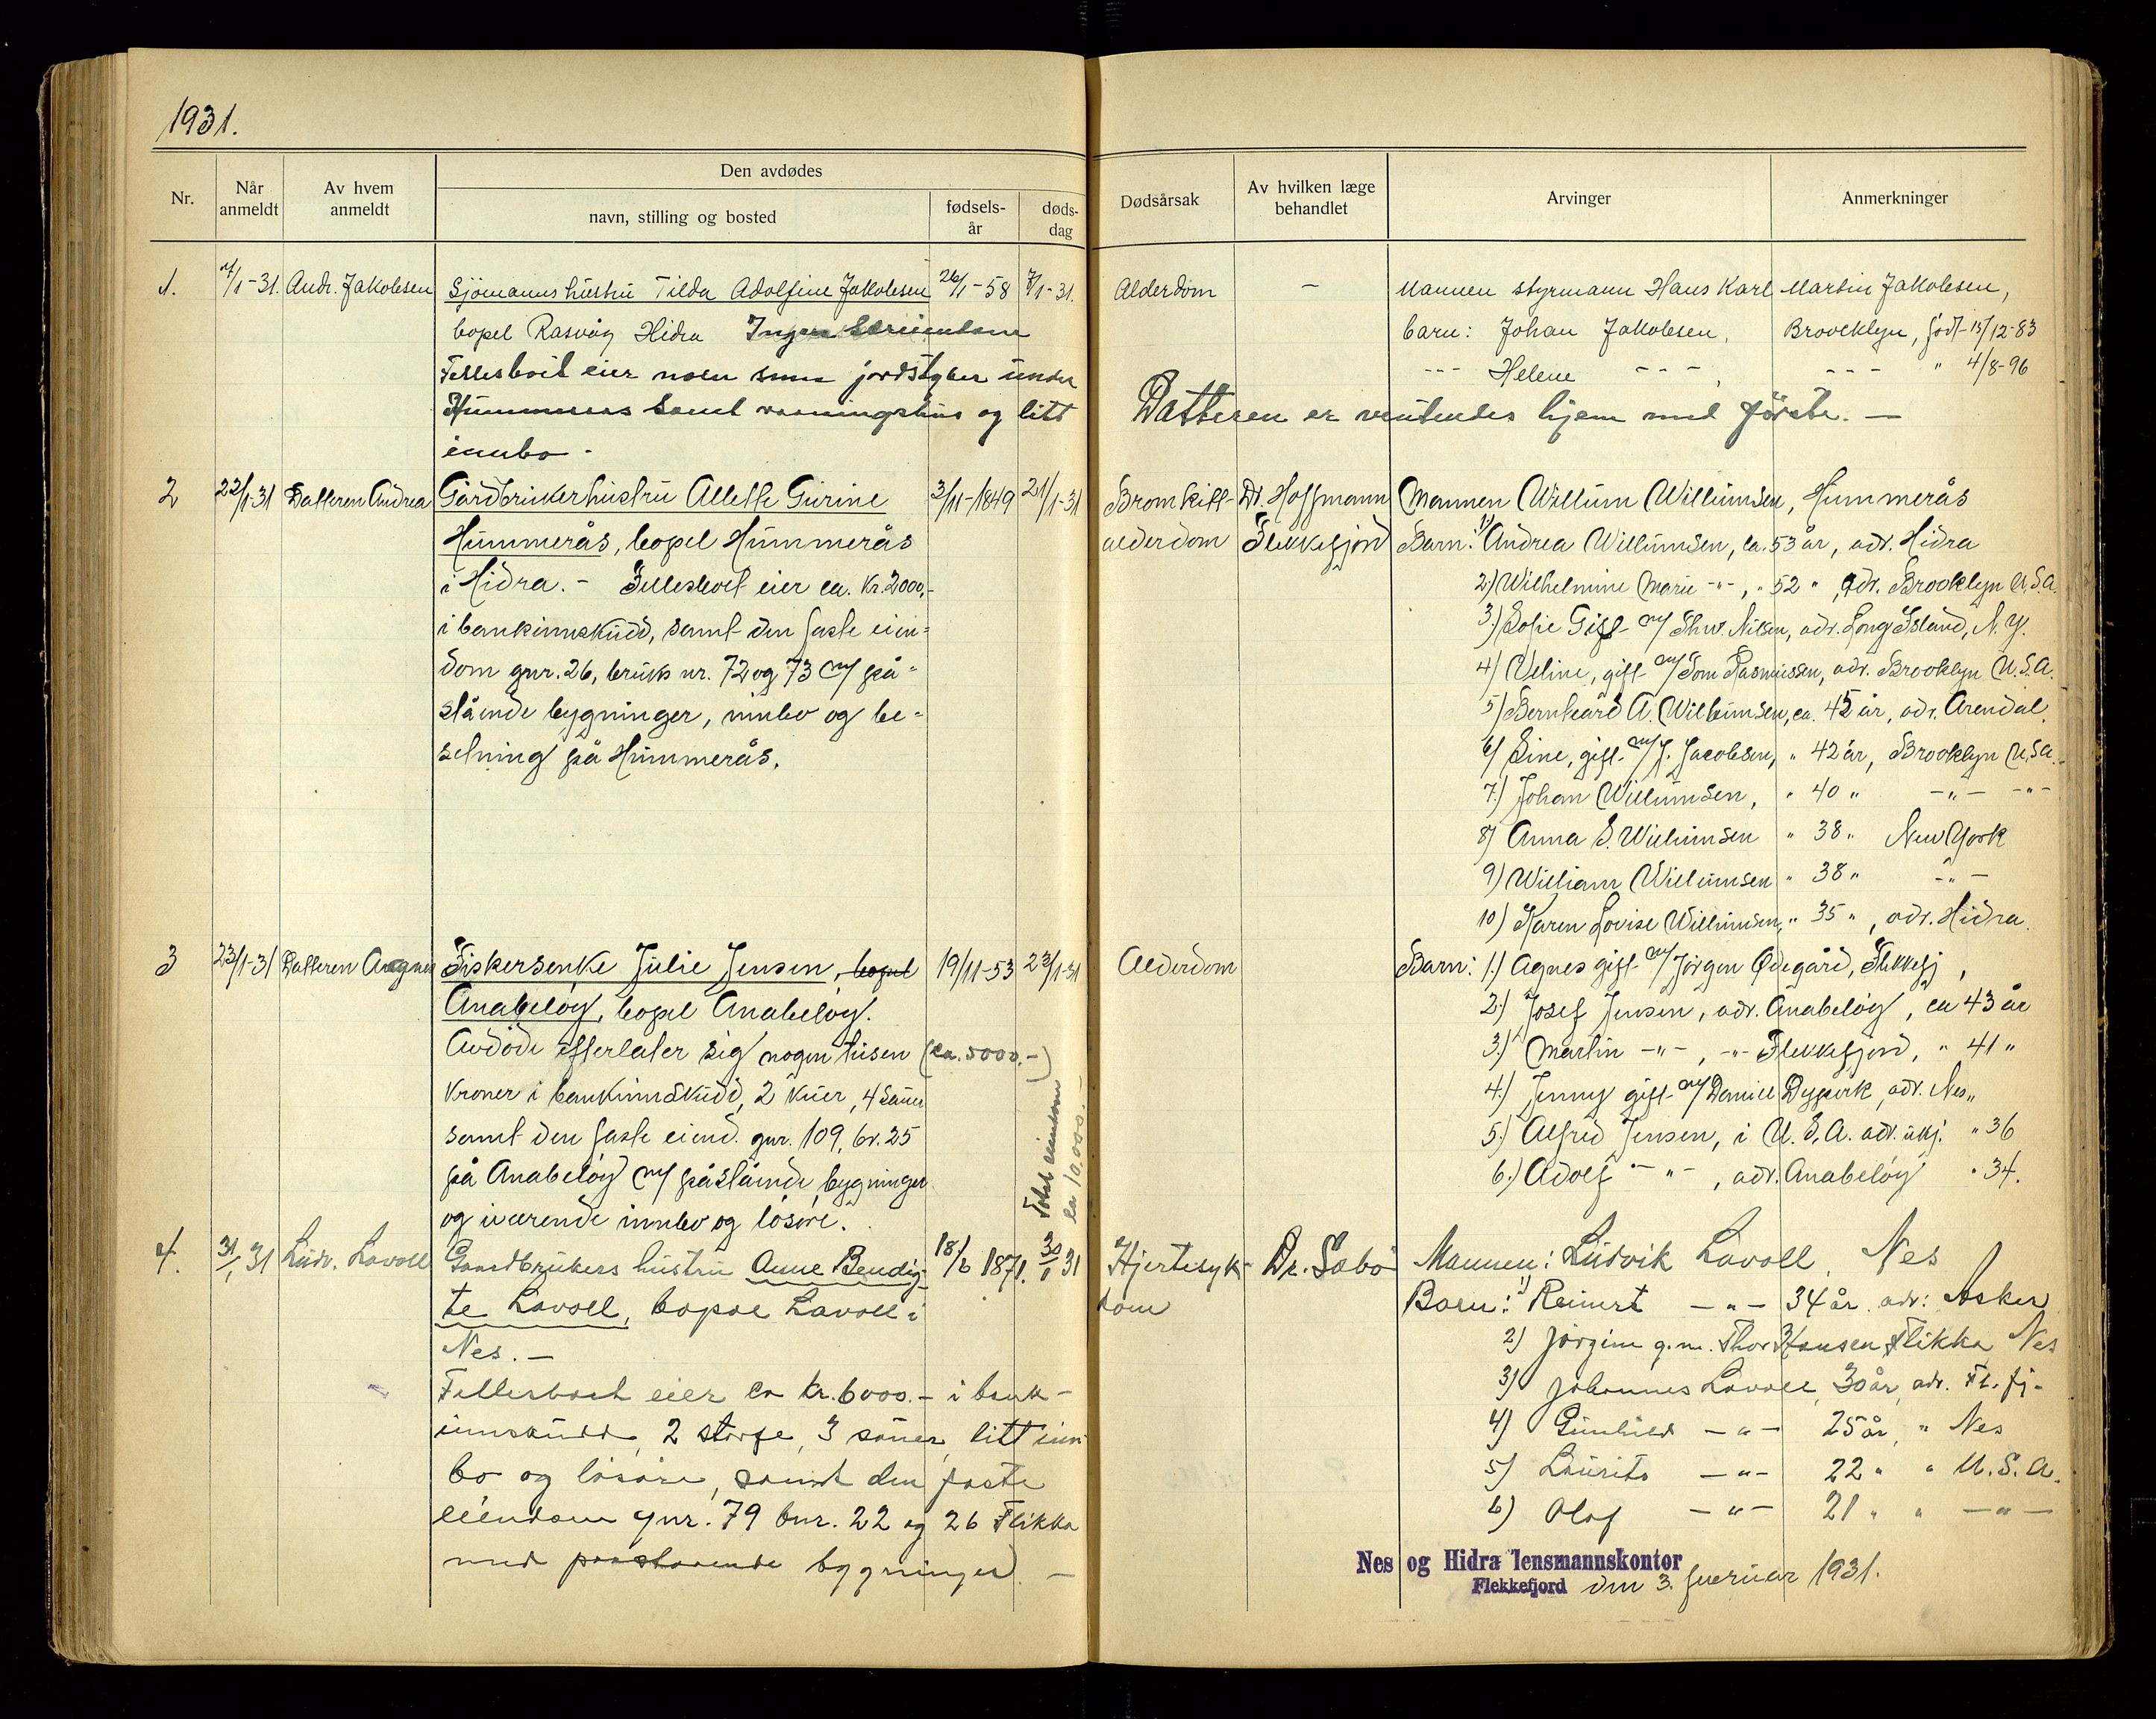 1931.
Nr.
Når anmeldt
Av hvem anmeldt
Den avdødes
navn, stilling og bosted
fødsels-år
døds-dag
Dødsårsak
Av hvilken læge behandlet
Arvinger
Anmerkninger
1. 7/1-31. Andr. Jakobsen Sjömannshustru Tilda Adolfine Jakobsen 26/1-58 7/1-31. Alderdom - Mannen styrmann Hans Karl Martin Jakobsen,
bopel Rasvåg Hidra Ingen
barn: Johan Jakobsen, Broocklyn, född 15/12-83
Fellesboet eier noen små jordstyker under
--- Helene ---, --- " 4/8-96
Hummeraas samt vaaningshus og litt
Datteren er ventendes hjem med förste. —
innbo -
2 22/1-31 Datteren Andrea Gårdbrukerhustru Allette Gurine 3/11-1849 21/1-31 Bronkitt- Dr. Hoffmann Mannen Willum Willumsen, Hummerås
Hummerås, bopel Hummerås alderdom Flekkefjord Barn: 1) Andrea Willumsen, ca. 53 år, adr. Hidra
i Hidra. - Fellesboet eier ca. kr. 2000,-
2) Wilhelmine Marie -"-, " 52 ", adr. Brooklyn U.S.A.
i bankinnskudd, samt den faste eien=
3.) Sofie Gift m/ Thv. Nilsen, adr. Long Island, N.Y.
dom gnr. 26, bruks nr. 72 og 73 m/ på=
4) Oline, gift m/ Tom Rasmussen, adr. Brooklyn U.S.A.
stående bygninger, innbo og be=
5) Bernhard A. Willumsen, ca. 45 år, adr. Arendal.
setning på Hummerås.
6) Sine, gift m/ J. Jacobsen, " 42 år, Brooklyn U.S.A.
7.) Johan Willumsen, " 40 " -"- -"-
8) Anna S. Willumsen " 38 " New York
9) William Willumsen " 38 " -"-
10) Karen Lovise Willumsen, " 35 ", adr. Hidra.
3 23/1-31 Datteren Aagnes Fiskerenke Julie Jensen, bopel 19/11-53 23/1-31 Alderdom Barn: 1.) Agnes gift m/ Jörgen Ødegård, Flekkefj,
Anabeløy, bopel Anabeløy.
2.) Josef Jensen, adr. Anabeløy, ca 43 år
Avdöde efterlater sig nogen tusen (ca. 5000.-)
3.) Martin -"-, -"- Flekkefjord, " 41 "
kroner i bankinnskudd, 2 kuer, 4 sauer
4.) Jenny gift m/ Daniel Dypvik, adr. Nes "
samt den faste eiend. gnr. 109, br. 25
5.) Alfred Jensen, i U.S.A. adr. ukj. " 36
på Anabeløy m/ påstående bygninger
6.) Adolf -"-, adr. Anabeløy " 34.
og iværende innbo og lösöre.
Total eiendom
ca 10,000.-
4. 31/1 31 Ludv. Lavoll Gaardbrukers hustru Anne Bendig- 18/6 1871. 30/1 31 Hjertesyk- Dr. Sæbö Mannen: Ludvik Lavoll, Nes
te Lavoll, bopæl Lavoll i dom Barn: 1) Reinert -"- 34 år adr: Asker
Nes. —
2) Jørgine g.m. Thor Hansen Flikka Nes
Fellesboet eier ca kr. 6000.- i bank-
3) Johannes Lavoll, 30 år, adr. Fl.fj-
innskudd, 2 storfe, 3 sauer, litt inn-
4) Gunhild -"- 25 år, " Nes
bo og lösöre, samt den faste
5) Laurits -"- 22 " " U.S.A.
eiendom gnr. 79 bnr. 22 og 26 Flikka
6) Olaf -"- 21 " " -"-
med paastaaende bygninger. —
Nes og Hidra lensmannskontor
Flekkefjord den 3. februar 1931.